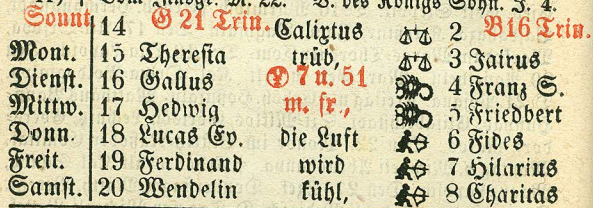 Zinsgr. M. 22. des Königs Sohn. J. 4.
Sonnt 14 G 21 Trin. Calixtus 2 B16 Trin.
Mont. 15 Theresia trüb, 3 Jairus
Dienst. 16 Gallus 7 u. 51 4 Franz S.
Mittw. 17 Hedwig m. fr., 5 Friedbert
Donn. 18 Lucas Ev. die Luft 6 Fides
Freit. 19 Ferdinand wird 7 Hilarius
Samst. 20 Wendelin kühl, 8 Charitas